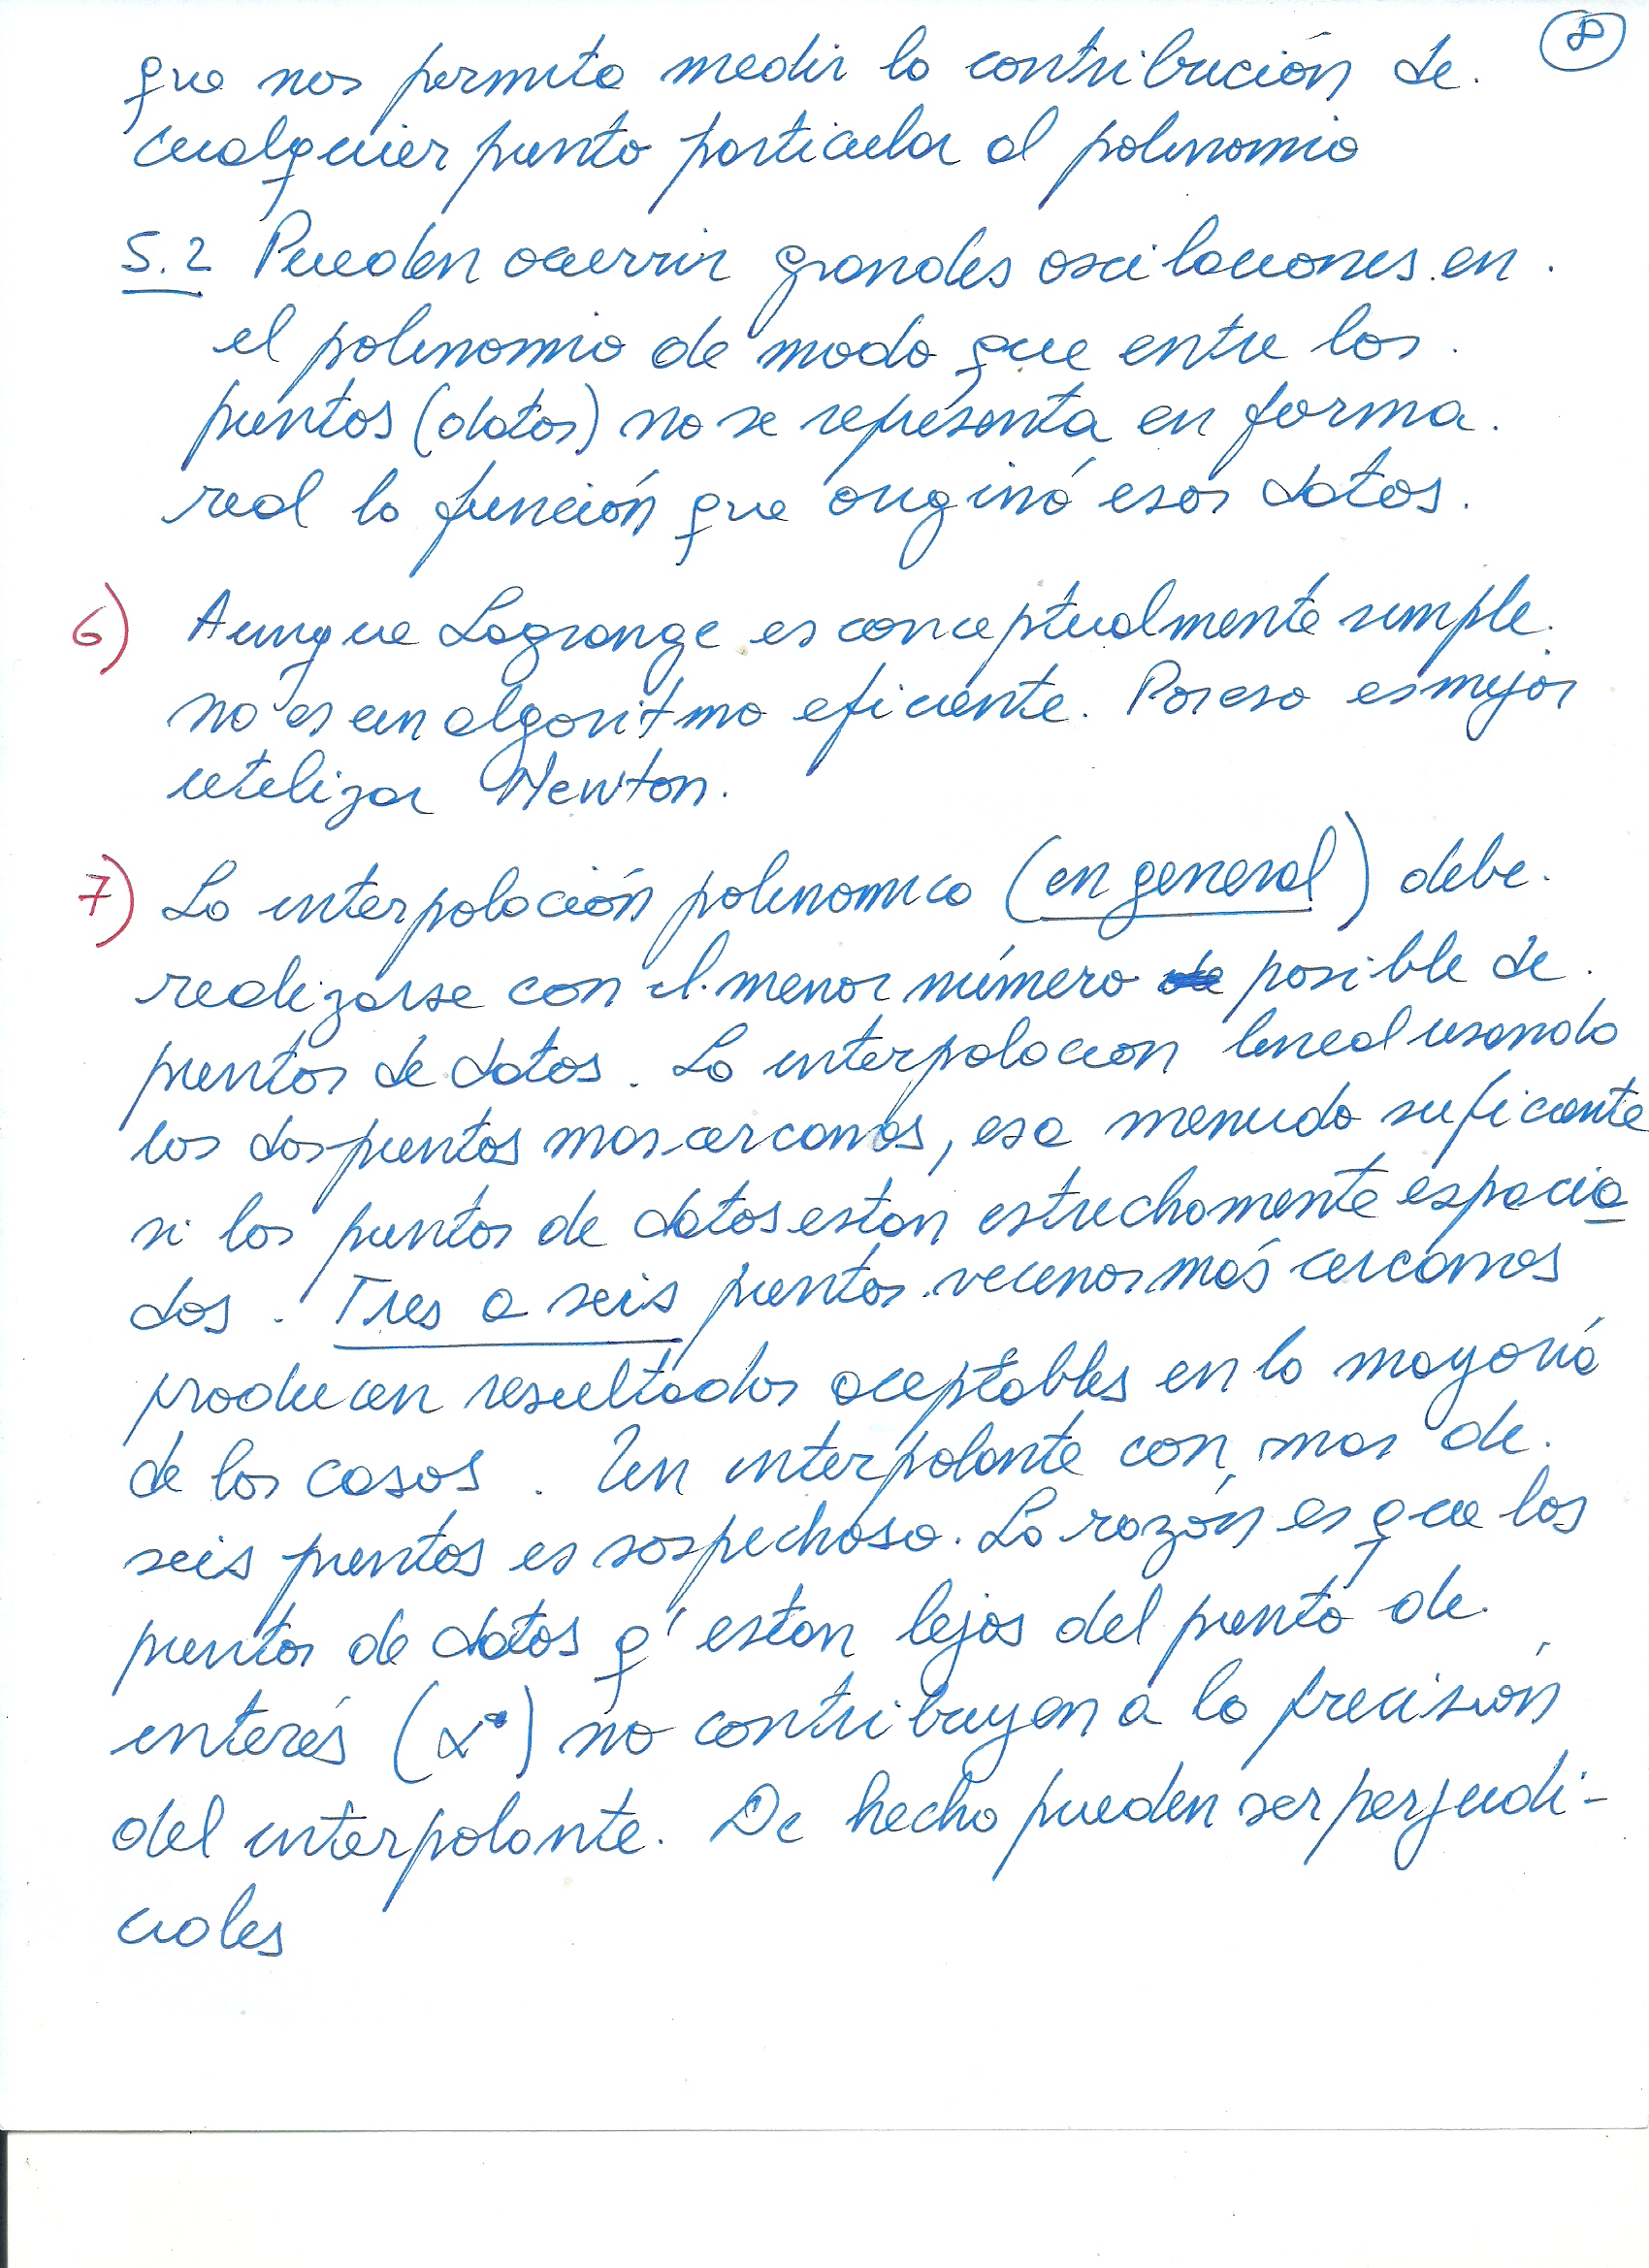 8
que nos permita medir la contribución de.
cualquier punto particular al polinomio
5.2 Pueden ocurrir grandes oscilaciones en.
el polinomio de modo que entre los.
puntos (datos) no se representa en forma.
real la función que originó esos datos.
6) Aunque Lagrange es conceptualmente simple.
no es un algoritmo eficiente. Por eso es mejor
utilizar Newton.
7) La interpolación polinomica (en general) debe.
realizarse con el menor número posible de.
puntos de datos. La interpolacion lineal usando
los dos puntos mas cercanos, es a menudo suficiente
si los puntos de datos estan estrechamente espacia
dos. Tres a seis puntos vecinos más cercanos
producen resultados aceptables en la mayoriá
de los casos. Un interpolante con mas de.
seis puntos es sospechoso. La razón es que los
puntos de datos q' estan lejos del punto de.
interés (x*) no contribuyen a la precisión
del interpolante. De hecho pueden ser perjudi-
ciales